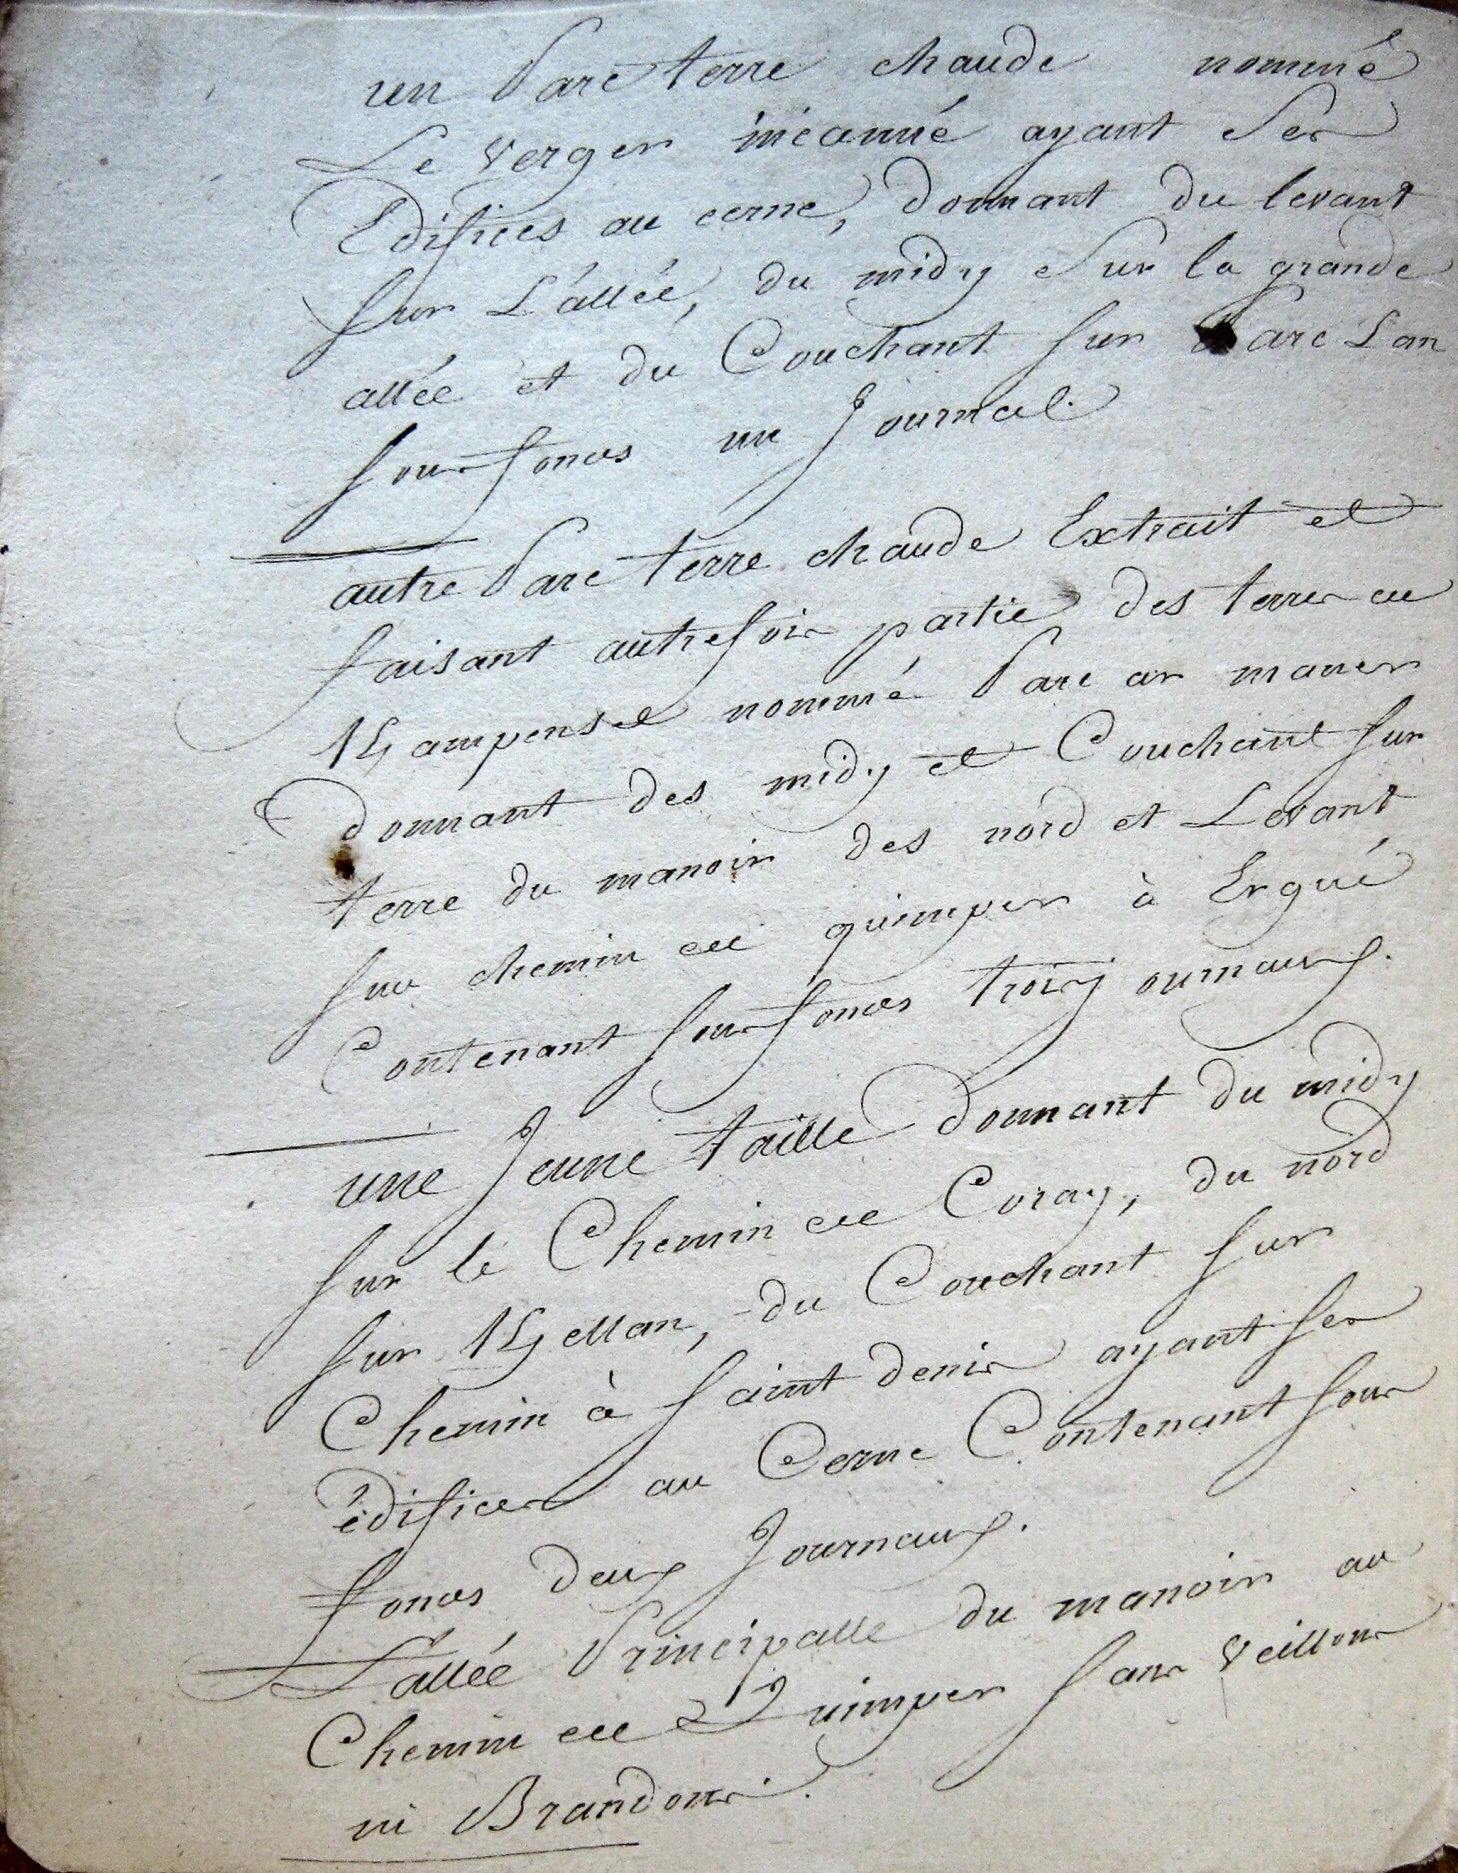 un Parc terre chaude nommé
Le verger ayant Ses
Edifices au cerne, donnant du levant
Sur L'allée, du midy Sur la grande
allée et du Couchant Sur Parc Lan
Sous fonds un Journal.
autre Parc terre chaude Extrait et
faisant autrefois partie des terres de
Kampensel nommé Parc ar maner
donnant des midy et Couchant Sur
terre du manoir des nord et Levant
Sur chemin de quimper à Ergué
Contenant Sous fonds trois journaux.
une Jeune taille donnant du midy
Sur le Chemin de Coray, du nord
Sur Kellan, du Couchant Sur
Chemin à Saint denis ayant Ses
édifices au Cerne Contenant Sous
fonds deux Journaux.
L'allée Principalle du manoir au
Chemin de Quimper Sans Veillons
ni Brandons.